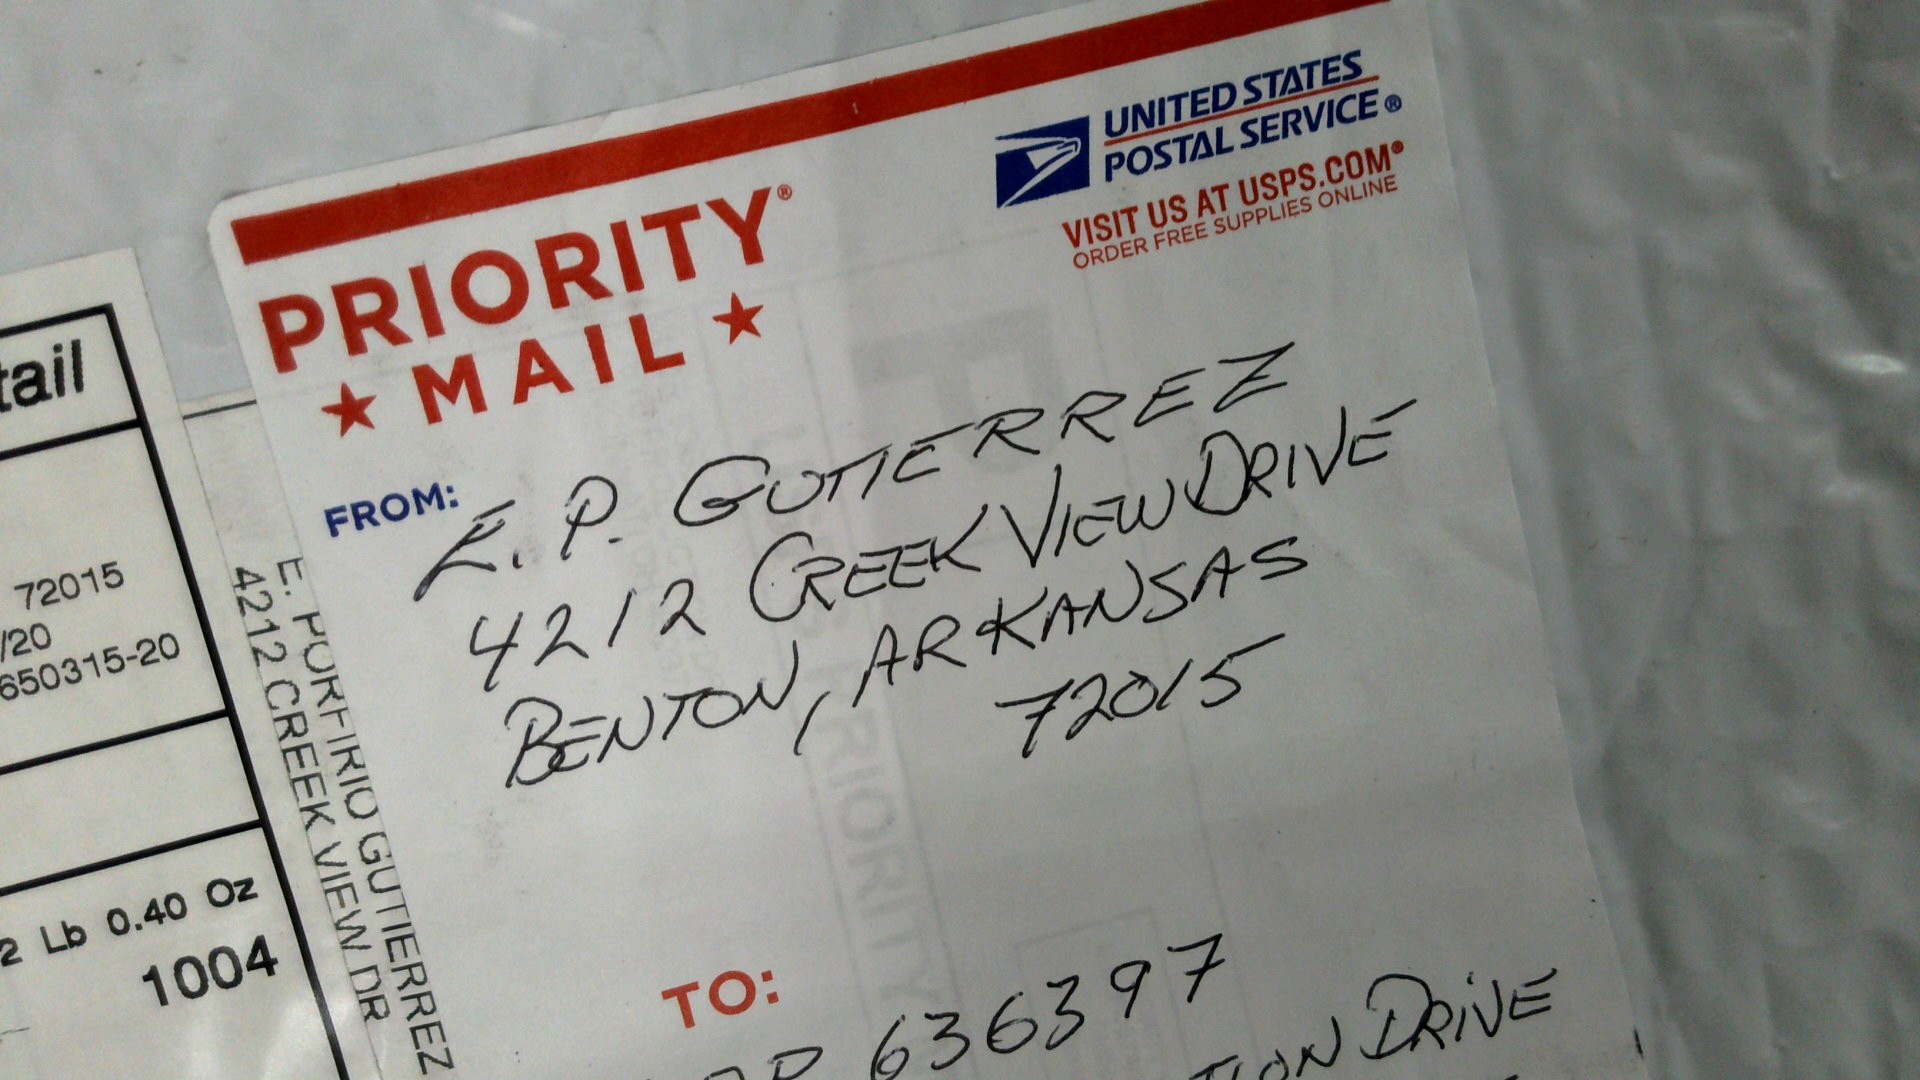 UNITED STATES
POSTAL SERVICE®
VISIT US AT USPS.COM®
ORDER FREE SUPPLIES ONLINE
PRIORITY®
★ MAIL ★
FROM:
E. P. GUTIERREZ
4212 CREEK VIEW DRIVE
BENTON, ARKANSAS
72015
TO:
636397
DRIVE
E. PORFIRIO GUTIERREZ
4212 CREEK VIEW DR
tail
72015
/20
650315-20
2 Lb 0.40 Oz
1004
PRIORITY